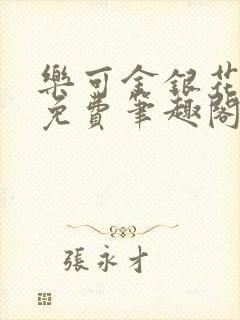 樂可金銀花
免費筆趣閣
張永才